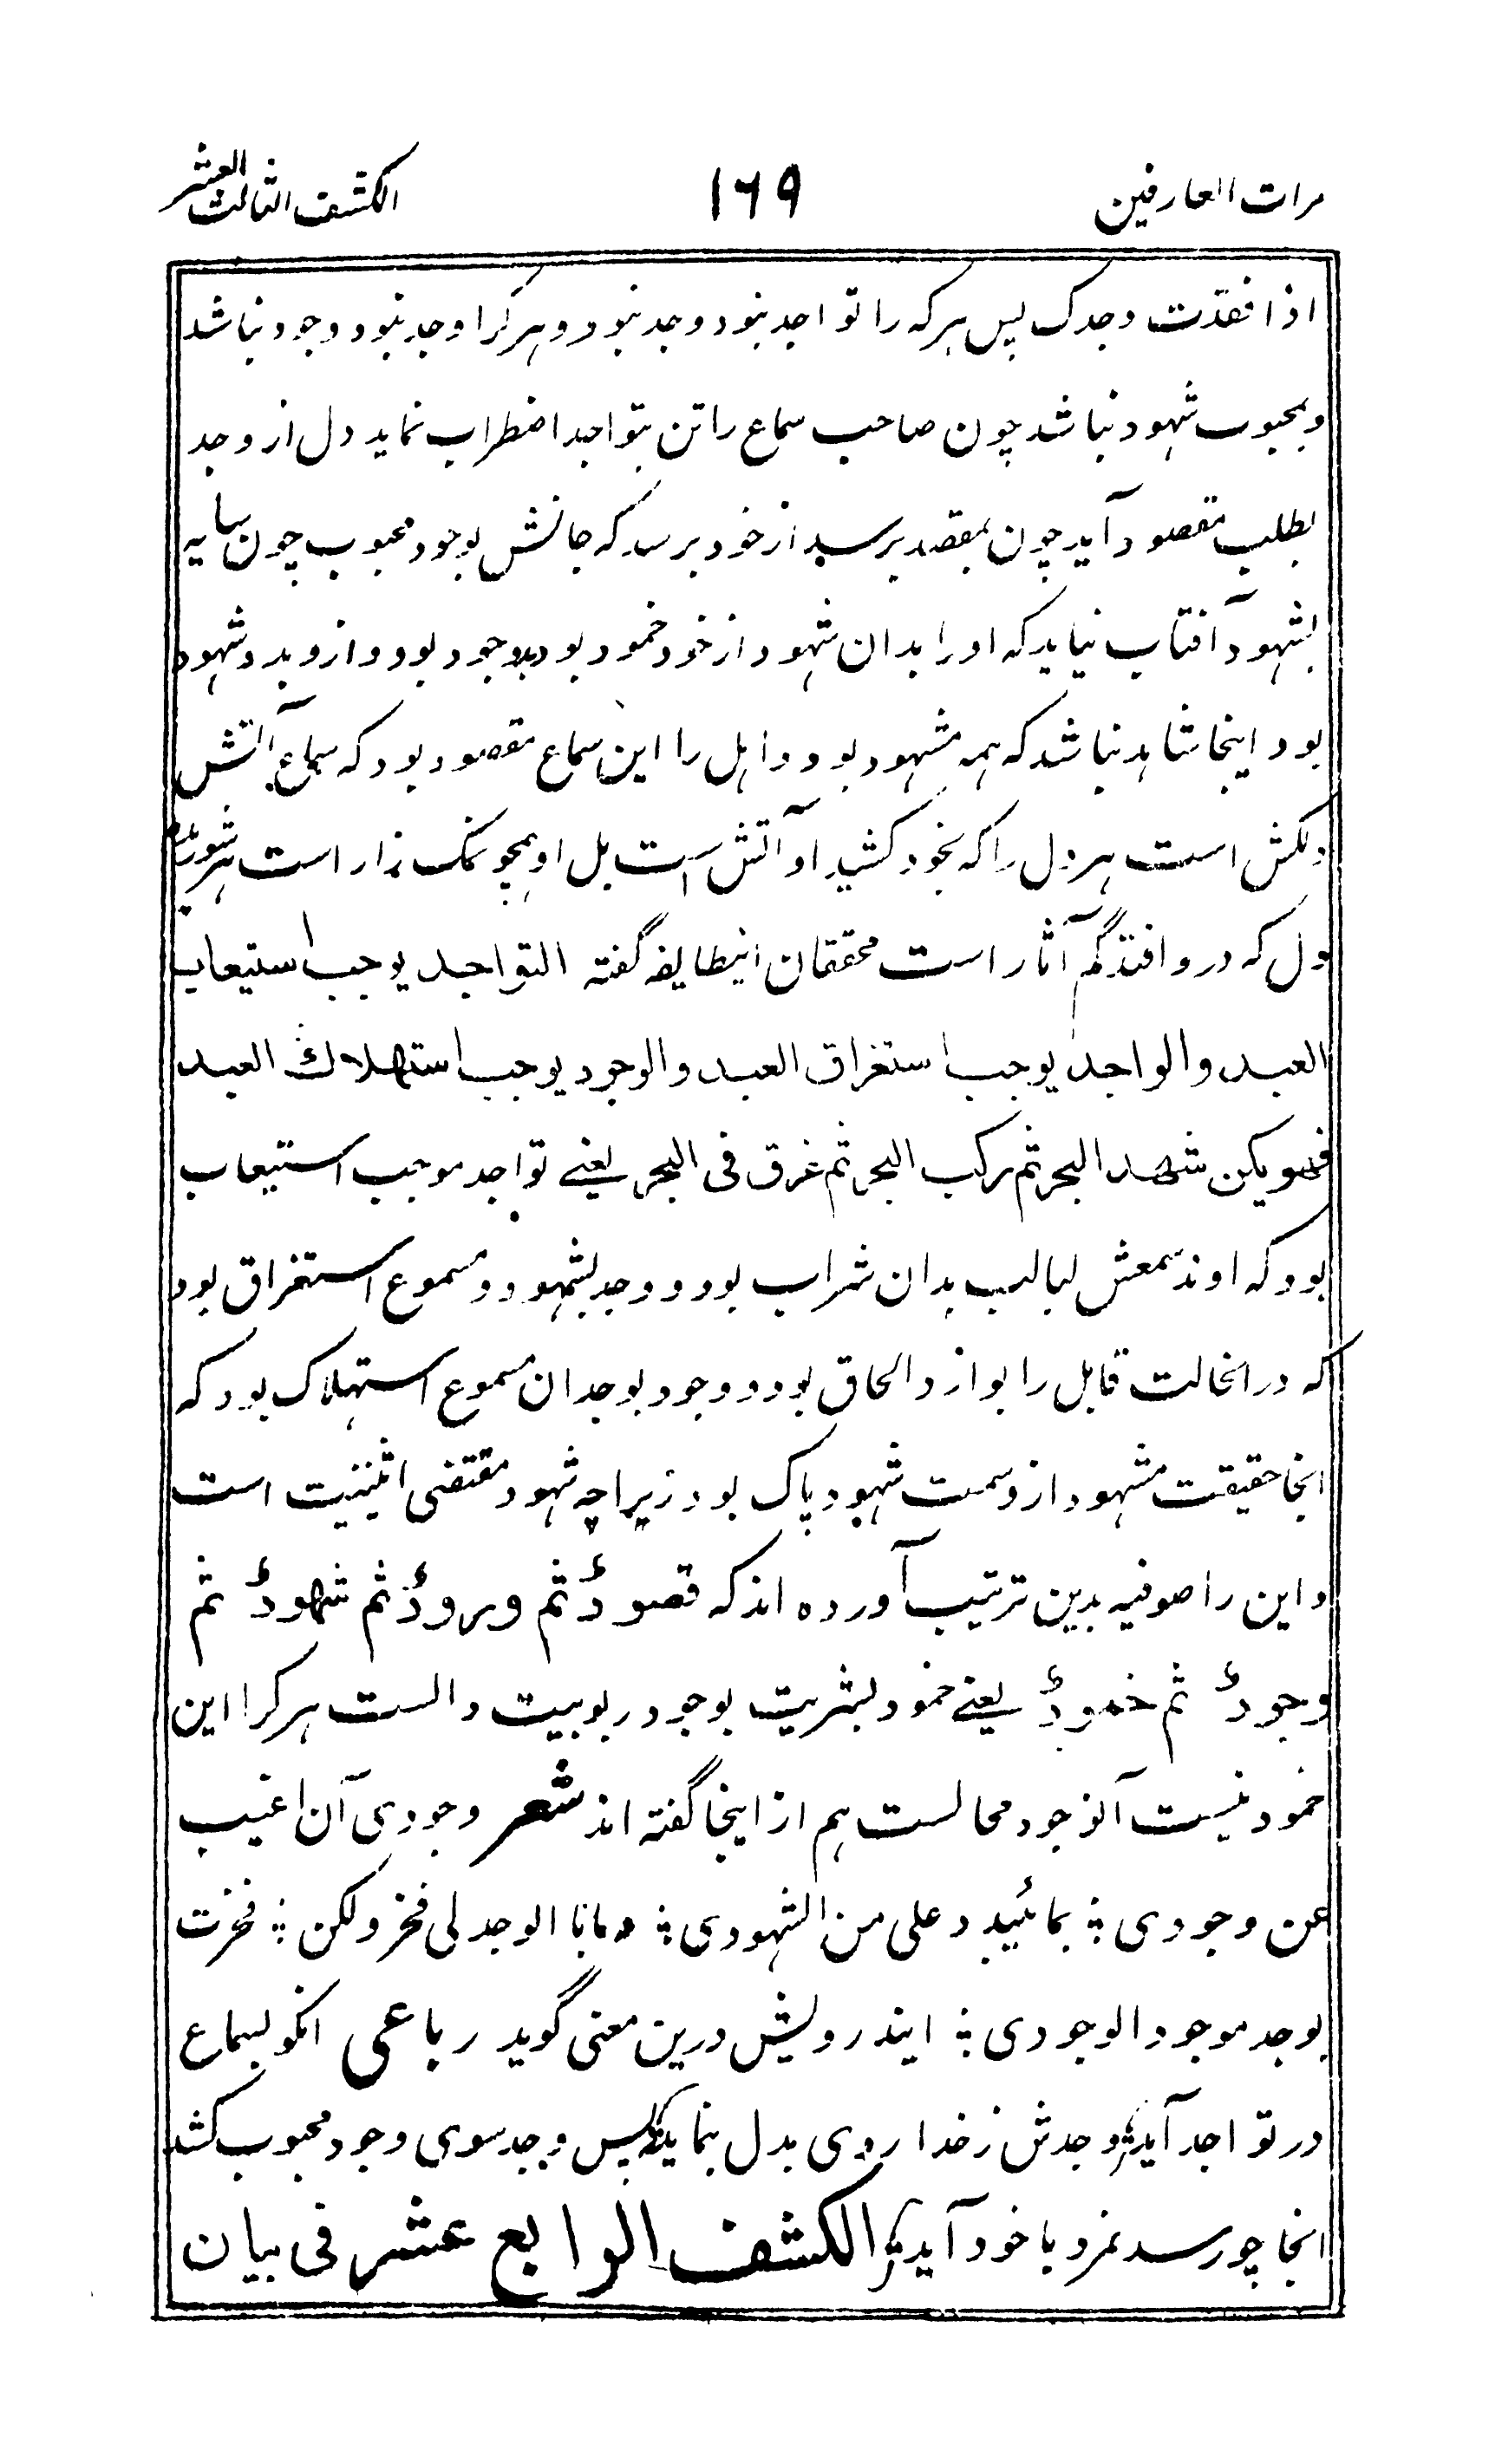 مرات العارفین ۱۶۹ الکشف الثالث العشر
اذا فقدت وجدک پس هر که را تواجد نبود وجد نبود و هر کرا وجد نبود وجود نباشد
و بمحبوب شهود نباشد چون صاحب سماع را تن بتواجد اضطراب نماید دل از وجد
بطلب مقصود آید چون بمقصد برسد از خود برسد که جانش بوجود محبوب چون سایه
بشهود آفتاب نیاید که او را بدان شهود از خود خمود بود بوجود بود و ازو بدو شهود
بود اینجا شاهد نباشد که همه مشهود بود و اهل را این سماع مقصود بود که سماع آتش
دلکش است هر دل را که بخود کشید او آتش است بل او همچو نمک زار است هر شوریده
دل که درو افتد گم آثار است محققان اینطایفه گفته التواجد یوجب استیعاب
العبد والواجد یوجب استغراق العبد والوجود یوجب استهلاك العبد
فهو یکن شهد البحر ثم رکب البحر ثم غرق فی البحر یعنے تواجد موجب استیعاب
بود که اوند سمعش لبالب بدان شراب بود و وجد بشهود و مسموع استغراق بود
که در انحالت قابل را بواز د الحاق بود و وجود بوجدان مسموع استهلاک بود که
انجا حقیقت مشهود از وسمت شهود پاک بود زیراچه شهود مقتضی اثنینیت است
و این را صوفیه بدین ترتیب آورده اند که قصودٌ ثم ورودٌ ثم شهودٌ ثم
وجودٌ ثم خمودٌ یعنے خمود بشریت بوجود ربوبیت دالست هر کرا این
خمود نیست آنوجود محالست هم از اینجا گفته اند شعر وجودی آن اغیب
عن وجودی ؛ بما یبد و علی من الشهودی ؛ و مانا الوجد لی فخر و لکن ؛ فخرت
بوجد موجود الوجودی ؛ ایندرویش درین معنی گوید رباعی انکو بسماع
در تواجد آید وجدش ز خدا روی بدل بنماید پس وجد سوی وجود محبوب کشد
انجا چو رسد نمرد با خود آید الکشف الرابع عشر فی بیان